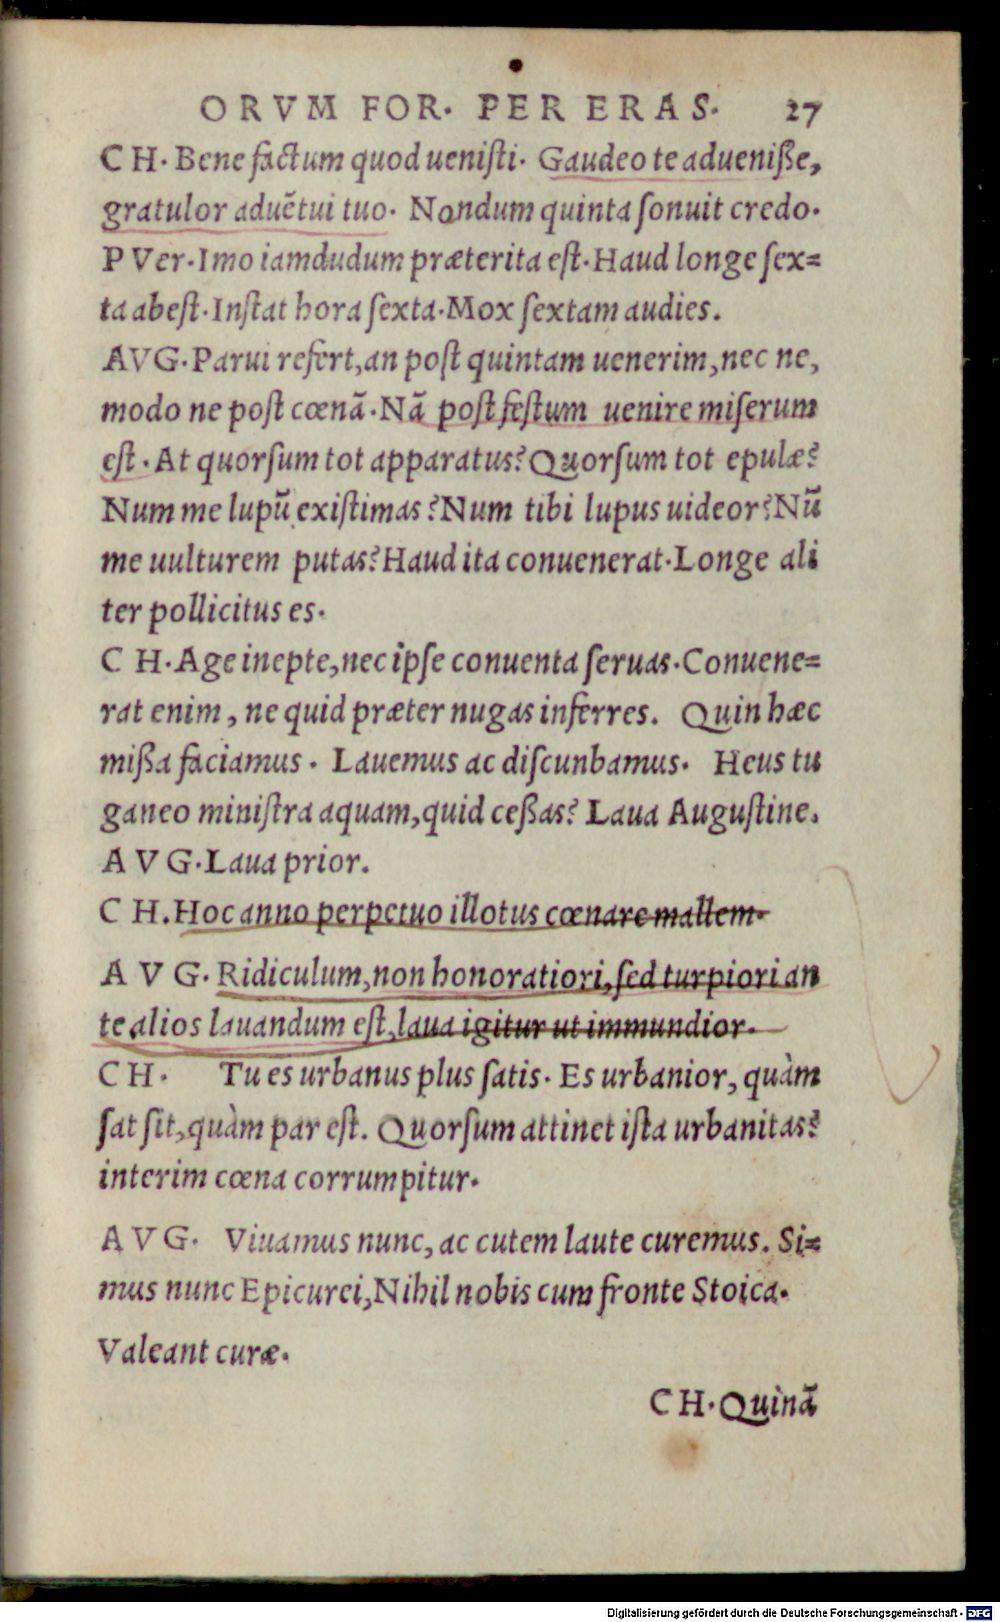 ORVM FOR. PER ERAS. 27
CH. Bene factum quod ueniſti. Gaudeo te adueniße,
gratulor aduẽtui tuo. Nondum quinta ſonuit credo.
PVer. Imo iamdudum præterita eſt. Haud longe ſex=
ta abeſt. Inſtat hora ſexta. Mox ſextam audies.
AVG. Parui refert, an poſt quintam uenerim, nec ne,
modo ne poſt cœnã. Nã poſt feſtum uenire miſerum
eſt. At quorſum tot apparatus? Quorſum tot epulæ?
Num me lupũ exiſtimas? Num tibi lupus uideor? Nũ
me uulturem putas? Haud ita conuenerat. Longe ali
ter pollicitus es.
CH. Age inepte, nec ipſe conuenta ſeruas. Conuene=
rat enim, ne quid præter nugas inferres. Quin hæc
mißa faciamus. Lauemus ac diſcunbamus. Heus tu
ganeo miniſtra aquam, quid ceßas? Laua Auguſtine.
AVG. Laua prior.
CH. Hoc anno perpetuo illotus cœnare mallem.
AVG. Ridiculum, non honoratiori, ſed turpiori an
te alios lauandum eſt, laua igitur ut immundior.
CH. Tu es urbanus plus ſatis. Es urbanior, quàm
ſat ſit, quàm par eſt. Quorſum attinet iſta urbanitas?
interim cœna corrumpitur.
AVG. Viuamus nunc, ac cutem laute curemus. Si=
mus nunc Epicurei, Nihil nobis cum fronte Stoica.
Valeant curæ.
CH. Quinã
Digitalisierung gefördert durch die Deutsche Forschungsgemeinschaft - DFG